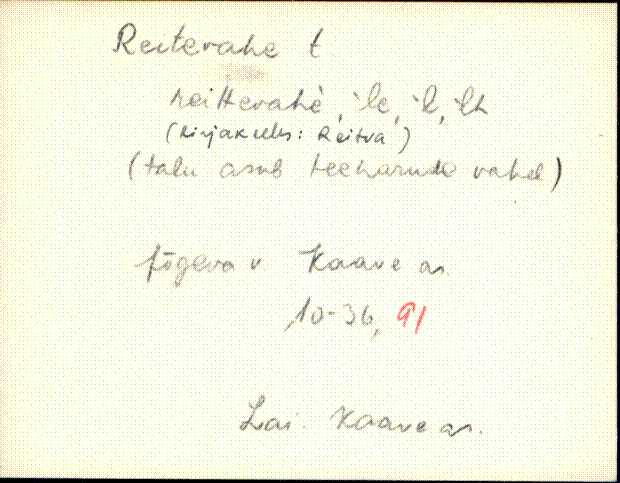 Reitevahe t
reittevahè, `le, `l, `lt
(kirjakeeles: Reitva)
(talu asub teeharude vahel)
Jõgeva v Kaave as.
10-36, 91
Lai. Kaave as.